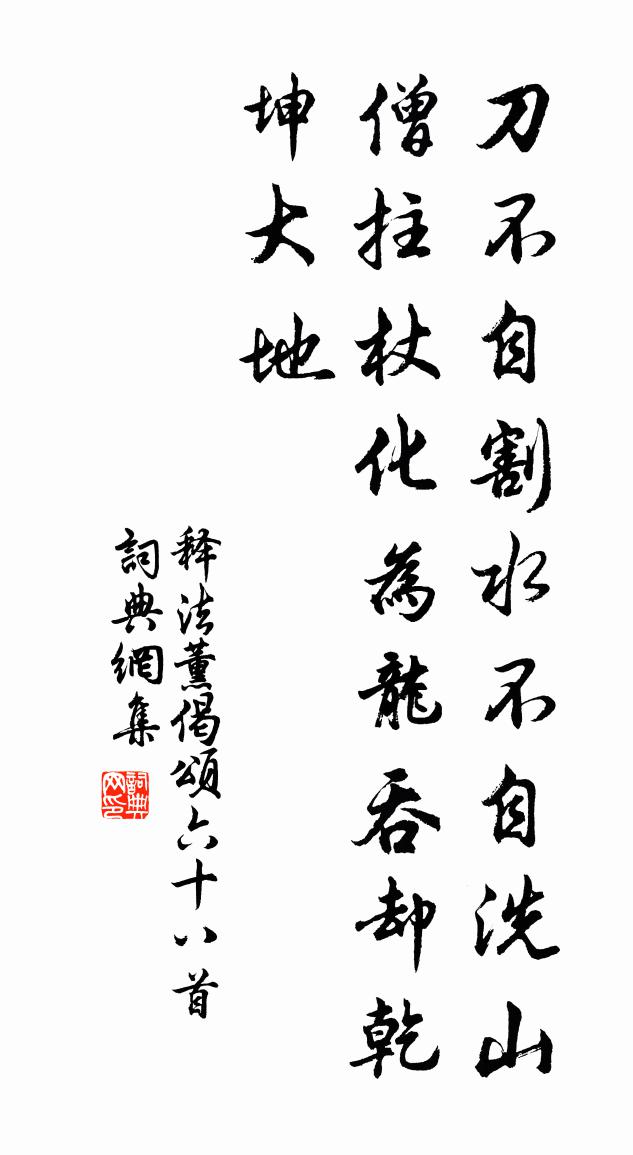 刀不自割水不自洗山
僧拄杖化為龍吞却乾
坤大地
释法薰偈頌六十八首
詞典網集
詞典网印